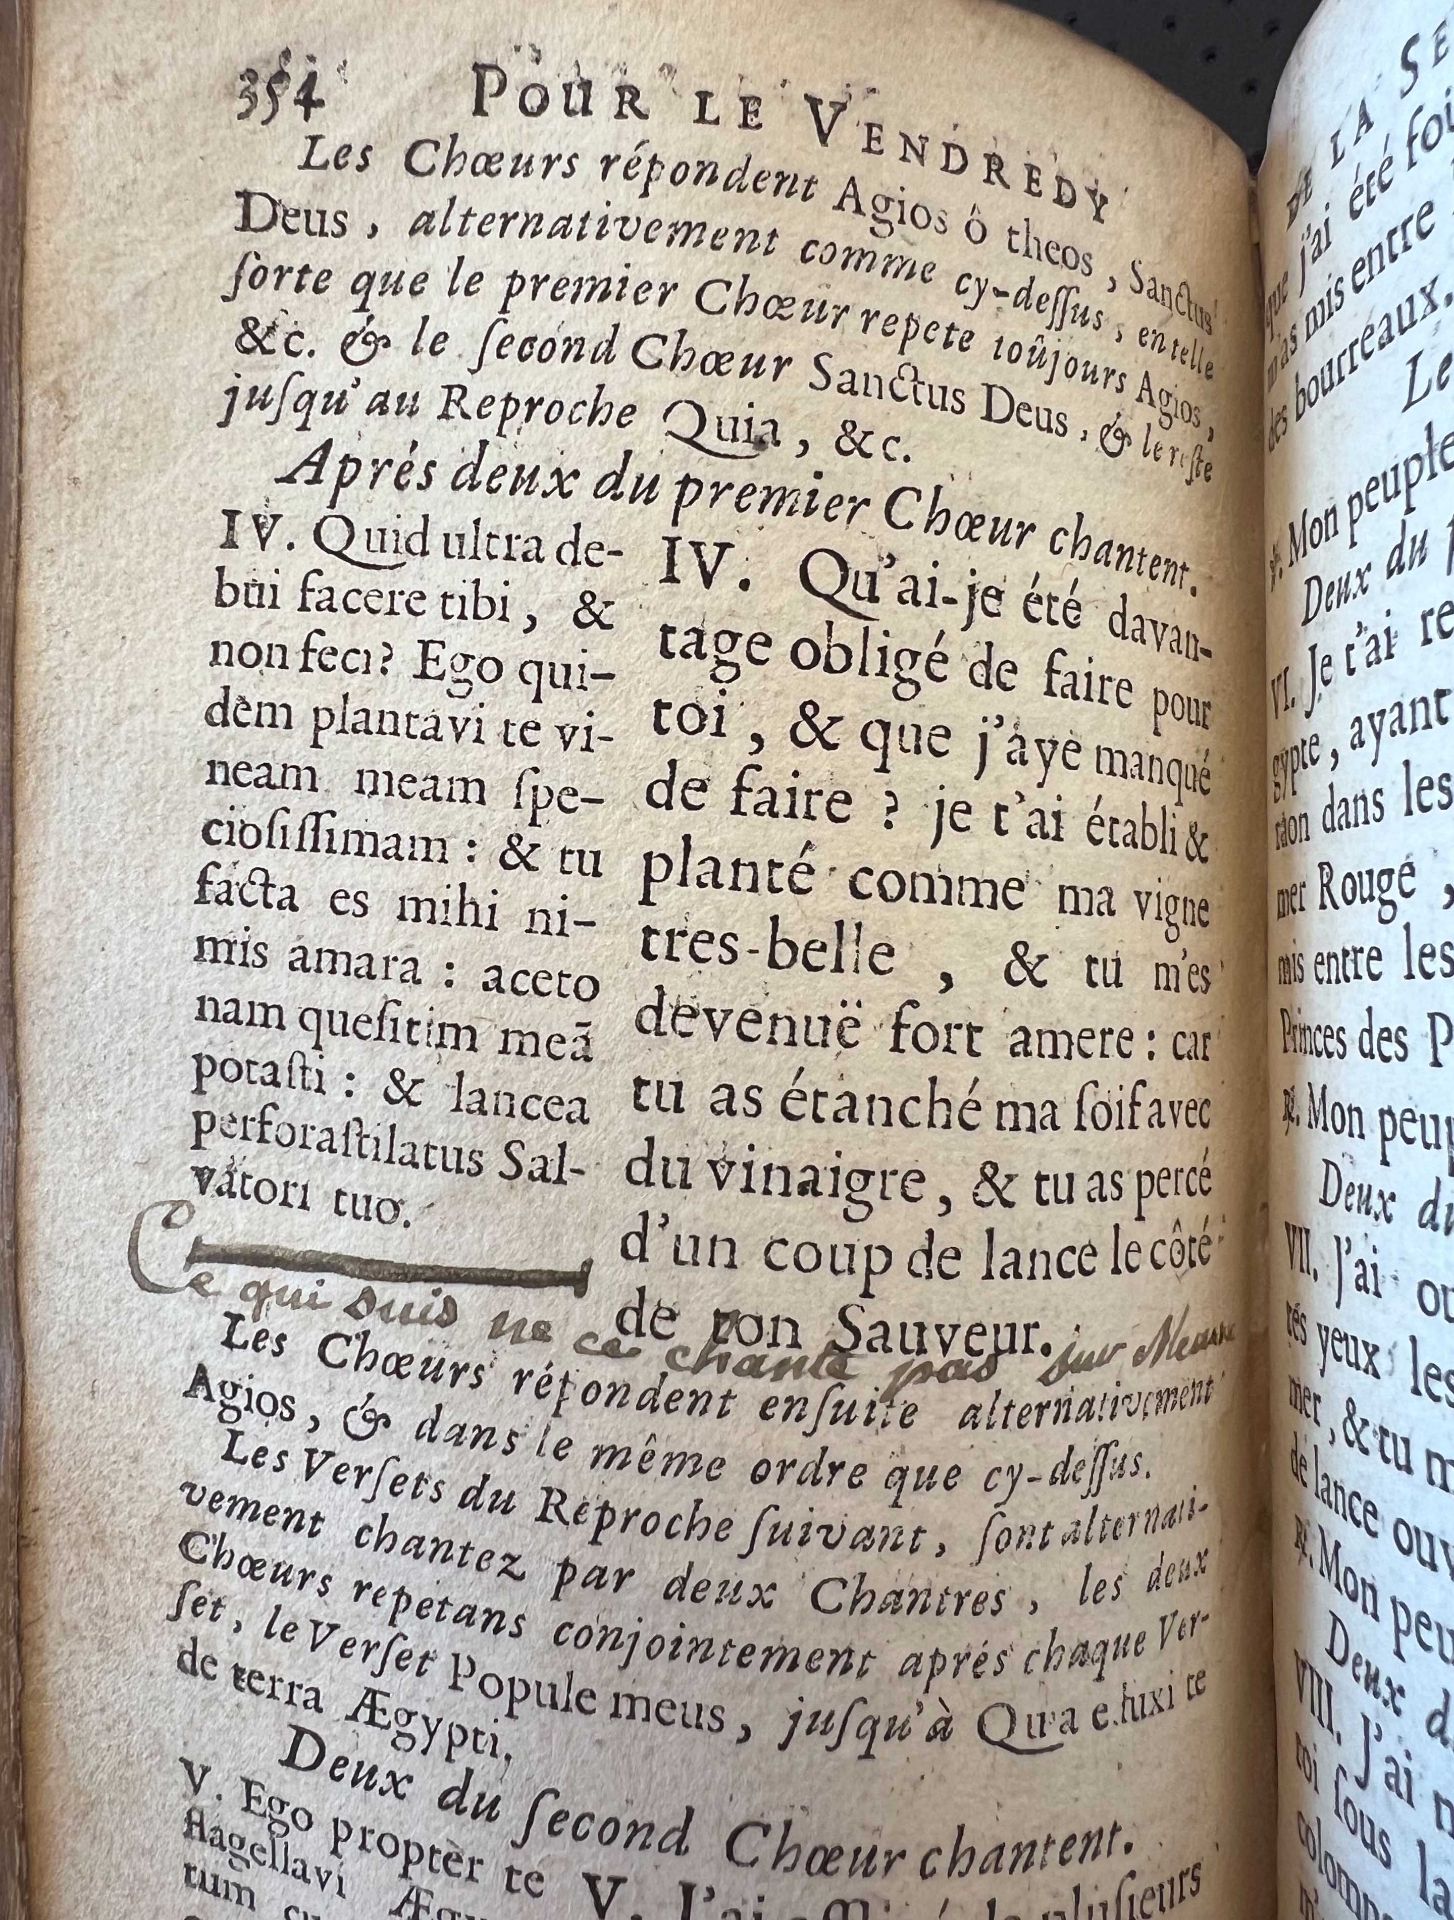 354 POUR LE VENDREDY
Les Chœurs répondent Agios ô theos, Sanctus
Deus, alternativement comme cy-deſſus, en telle
ſorte que le premier Chœur repete toûjours Agios,
&c. & le ſecond Chœur Sanctus Deus, & le reſte
juſqu'au Reproche Quia, &c.
Aprés deux du premier Chœur chantent.
IV. Quid ultra de-
bui facere tibi, &
non feci? Ego qui-
dem plantavi te vi-
neam meam ſpe-
cioſiſſimam : & tu
facta es mihi ni-
mis amara : aceto
nam queſitim meã
potaſti : & lancea
perforaſti latus Sal-
vatori tuo.
IV. Qu'ai-je été davan-
tage obligé de faire pour
toi, & que j'aye manqué
de faire ? je t'ai établi &
planté comme ma vigne
tres-belle, & tu m'es
devenuë fort amere : car
tu as étanché ma ſoif avec
du vinaigre, & tu as percé
d'un coup de lance le côté
de ton Sauveur.
Ce qui suis ne ce chante pas sur
Les Chœurs répondent enſuite alternativement
Agios, & dans le même ordre que cy-deſſus.
Les Verſets du Reproche ſuivant, ſont alternati-
vement chantez par deux Chantres, les deux
Chœurs repetans conjointement aprés chaque Ver-
ſet, le Verſet Popule meus, juſqu'à Quia eduxi te
de terra Ægypti,
Deux du ſecond Chœur chantent.
V. Ego propter te
flagellavi
tum
V. J'ai de pluſieurs
DE LA SE
que j'ai été foi
m'as mis entre
des bourreaux.
Le
℟. Mon peuple
Deux du
VI. Je t'ai re
gypte, ayant
raon dans les
mer Rouge,
mis entre les
Princes des P
℟. Mon peup
Deux du
VII. J'ai ou
tés yeux les
mer, & tu m
de lance ouv
℟. Mon peu
Deux d
VIII. J'ai
toi ſous la
colomn